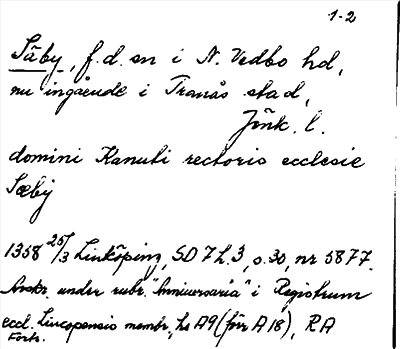 1-2
Säby, f.d. sn i N. Vedbo hd,
nu ingående i Tranås stad,
Jönk. l.
domini Kanuti rectoris ecclesie
Sæby
1358 25/3 Linköping, SD 7 h.3, s.30, nr 5877.
Avskr. under rubr. "Anniversaria" i Registrum
eccl. Lincopensis membr., hs A9 (förr A 18), RA
Forts.